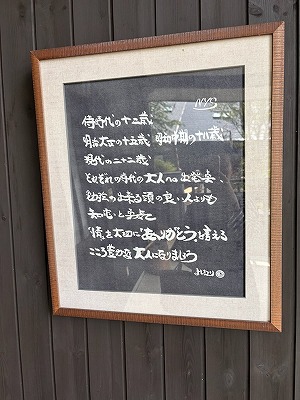 NYS
侍時代の十二歳
明治大正の十五歳 昭和中期の十八歳
現代の二十二歳
それぞれの時代の大人への出発点
勉強の出来る頭の良い人よりも
知恵と
情を大切に ありがとうと言える
こころ豊かな大人になりましょう